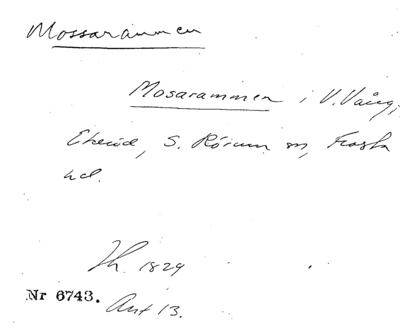 Mossarammen
Mosarammen i V. Vång,
Ekeröd, S. Rörum sn, Frosta
hd.
Jh. 1829
Nr 6743. Akt 13.